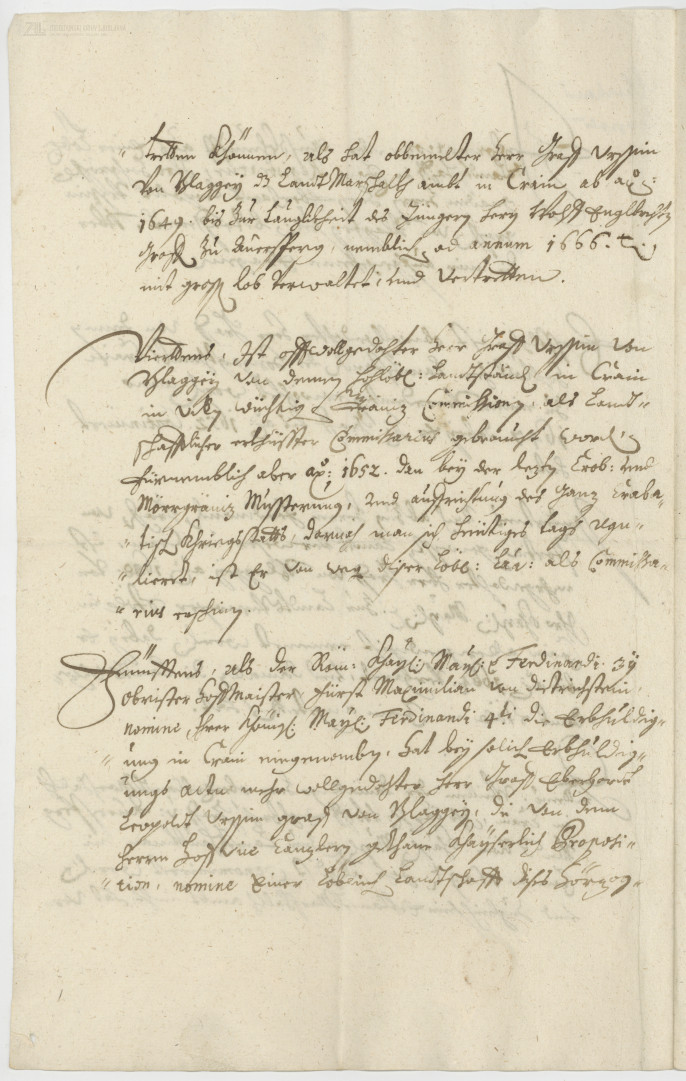 tretten khönnen, als hat obbemelter Herr Graff Ursiin
von Blaggeÿ dz LandtMarschalch ambt in Crain ab aō:
1649. bis zur tauglichheit des Jüngern Herrn Wolff Englbrecht
Graff zu Auersperg, nemblich ad annum 1666.
mit gross lob verwaltet, und vertretten.
Vierttens, Ist offtwollgedachter Herr Graff Ursiin von
Blaggeÿ von denen Hochlöbl: Landtständ in Crain
in vilen wichtig Gräniz Commission, als Landt-
schafftlicher erkhiester Commissarius gebraucht word,
fürnemblich aber aō: 1652. dan beÿ der Crob: und
Mörrgräniz Musterung, und auffrichtung des ganz Craba-
tisch Khriegsstatts, darnach man sich heintiges tags regu-
liert, ist Er von weg diser Löbl: La: als Commissa-
rius erschin.
Fünfftens, als der Röm: Khaÿl: Maÿl: Ferdinandi 3ÿ
obrister Hoffmaister Fürst Maximilian von Dietrichstein,
nomine Ihrer Königl: Maÿl: Ferdinandi 4ti die Erbhuldig-
ung in Crain eingenomben, hat beÿ solich Erbhuldig-
ungs actu mehr wollgedachter Herr Graff Eberhardt
Leopoldt Ursiin graff von Blaggeÿ, die von dem
Herrn Hoff Vice Canzlern gethane Khaÿserlich Proposi-
tion, nomine Einer Löblich Landtschafft dises Hörzog-